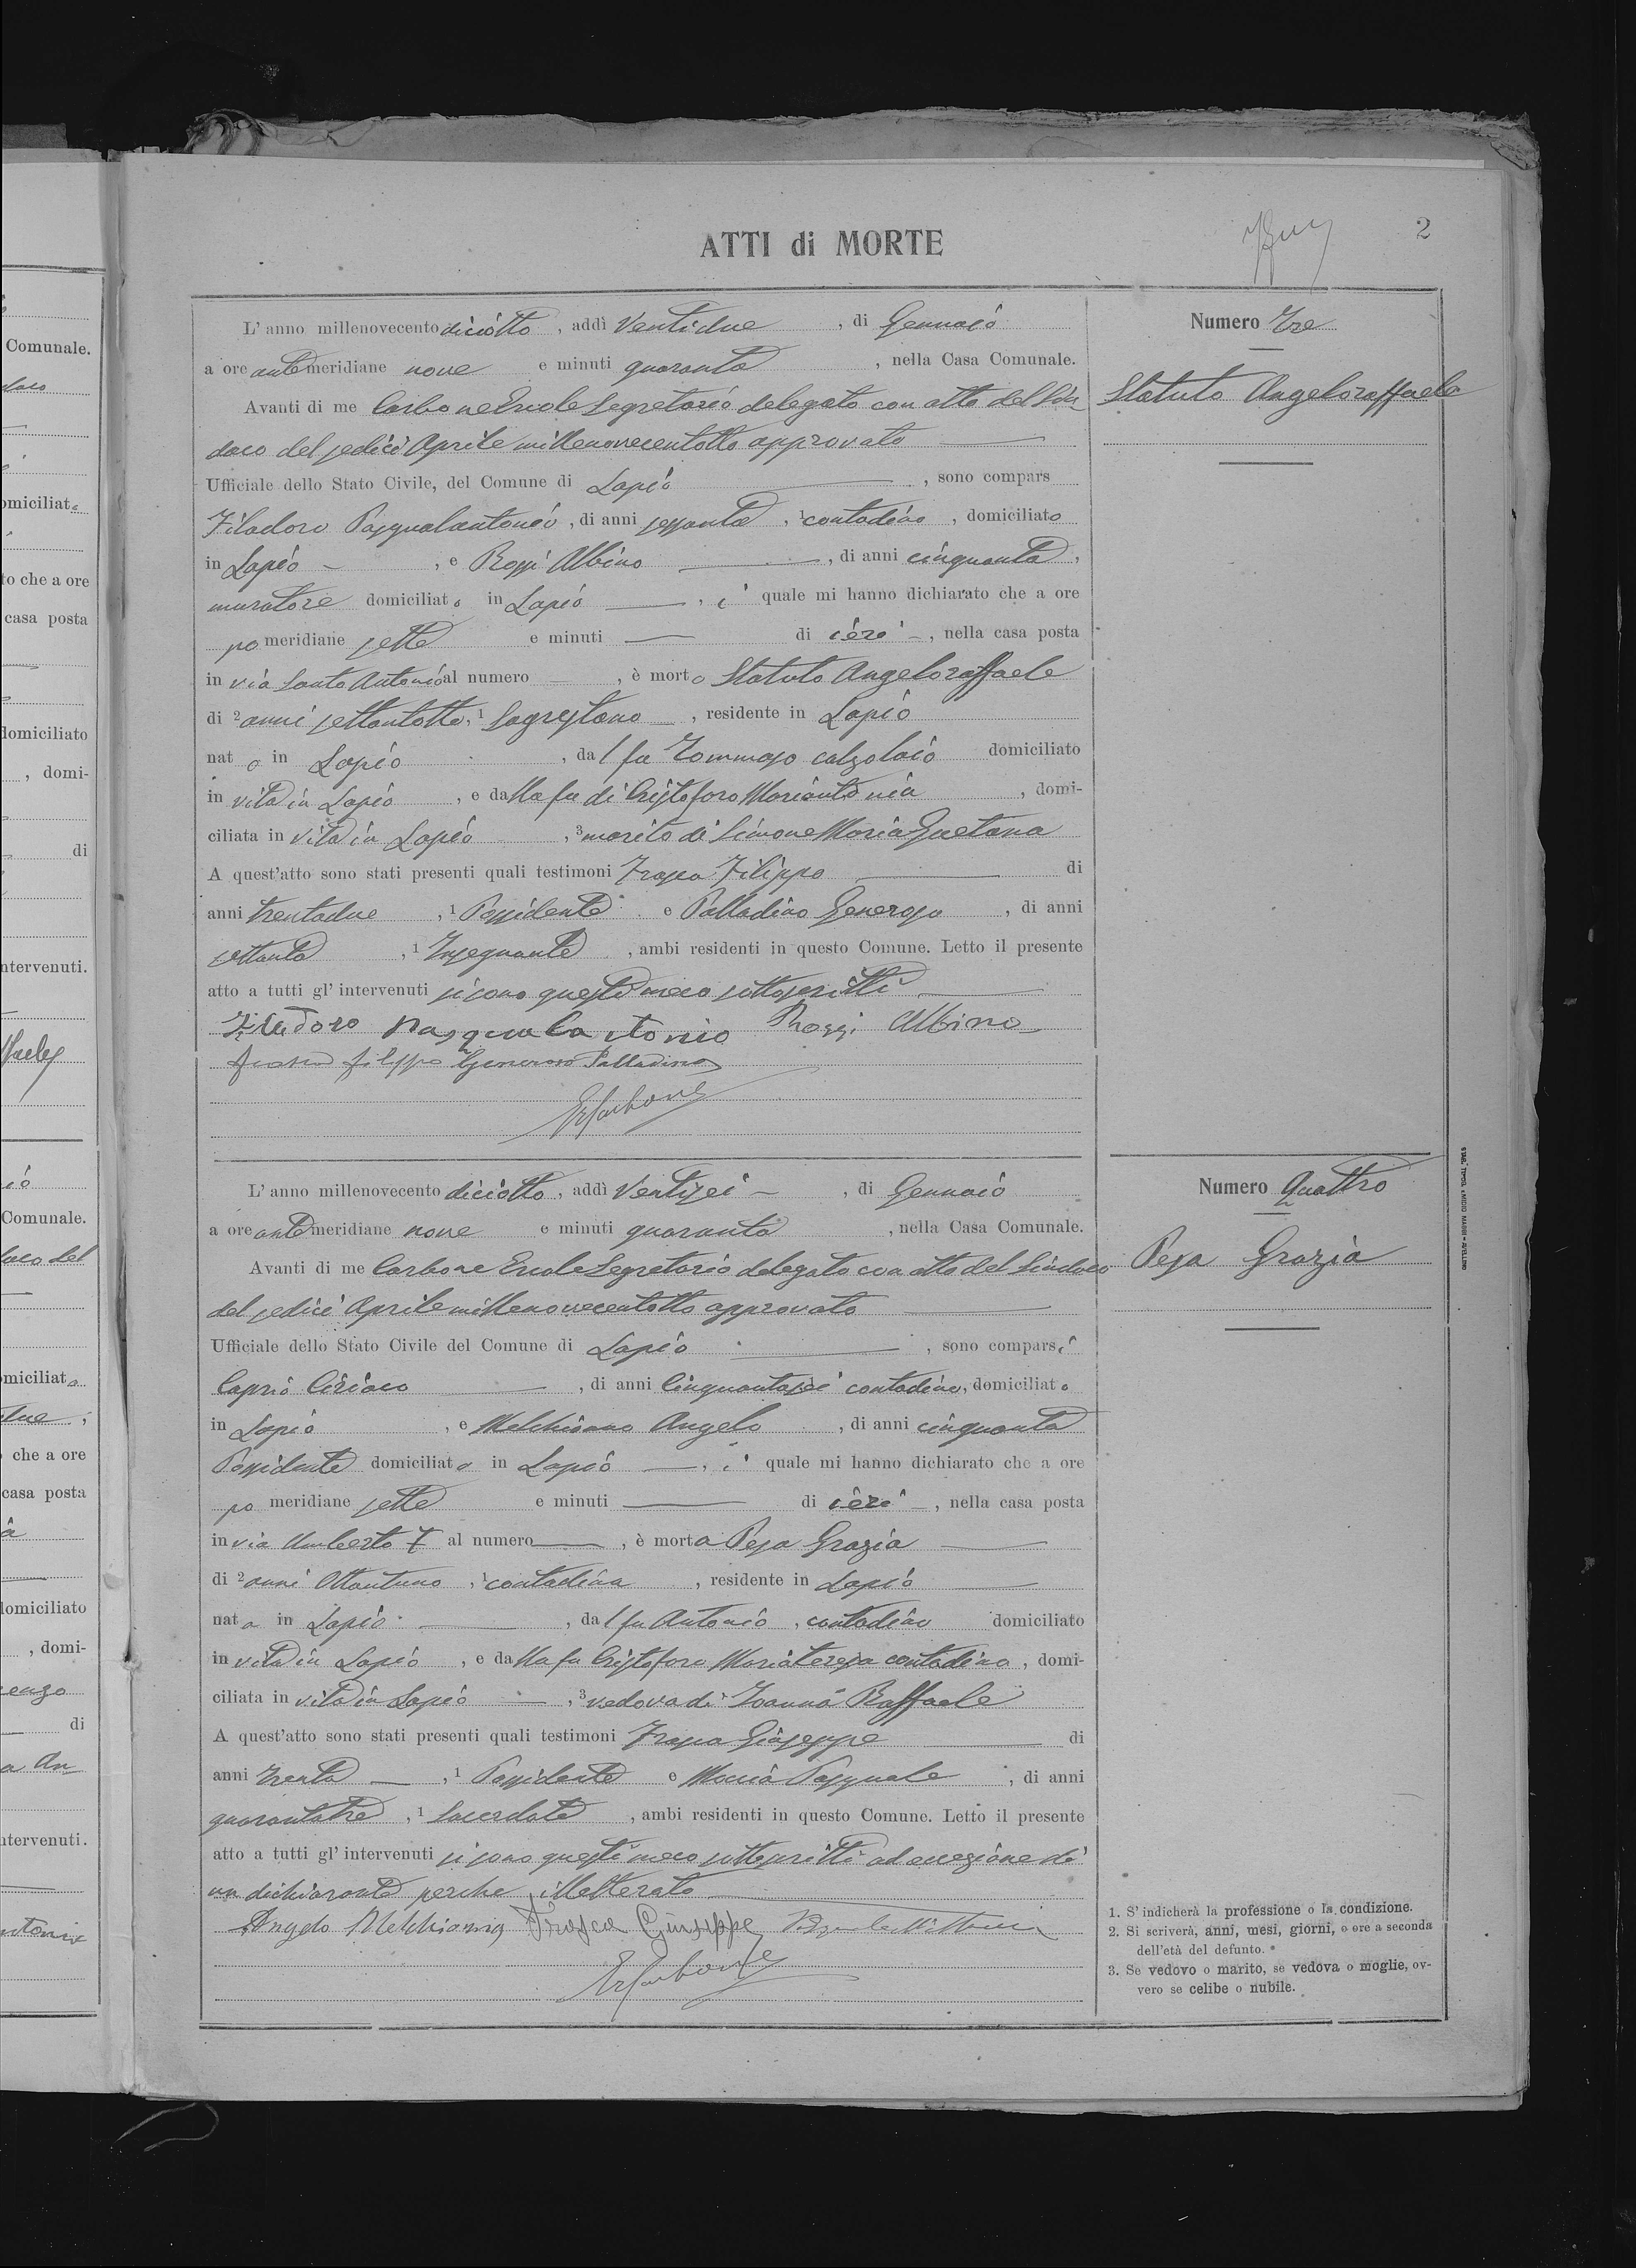 ATTI di MORTE
2
L'anno millenovecento diciotto, addì Ventidue, di Gennaio
a ore antemeridiane nove e minuti quaranta, nella Casa Comunale.
Avanti di me Carbone Ercole Segretario delegato con atto del Sin-
daco del sedici Aprile millenovecentotto approvato
Ufficiale dello Stato Civile, del Comune di Lapio, sono compars
Filadoro Pasqualantonio, di anni sessanta, 1 contadino, domiciliato
in Lapio, e Rossi Albino, di anni cinquanta,
muratore domiciliato in Lapio, i quale mi hanno dichiarato che a ore
pomeridiane sette e minuti — di ieri, nella casa posta
in via Santo Antonio al numero —, è morto Statuto Angeloraffaele
di 2 anni settantotto, 1 Sagrestano, residente in Lapio
nato in Lapio, dal fu Tommaso calzolaio domiciliato
in vita in Lapio, e dalla fu di Cristofaro Mariantonia, domi-
ciliata in vita in Lapio, 3 marito di Simone Maria Gaetana
A quest'atto sono stati presenti quali testimoni Frasca Filippo di
anni trentadue, 1 Possidente e Palladino Generoso, di anni
settanta, 1 Insegnante, ambi residenti in questo Comune. Letto il presente
atto a tutti gl'intervenuti si sono questi meco sottoscritti
Filadoro Pasqualantonio Rossi Albino
Frasca Filippo Generoso Palladino
ErCarbone
Numero Tre
Statuto Angeloraffaele
L'anno millenovecento diciotto, addì Ventisei, di Gennaio
a ore antemeridiane nove e minuti quaranta, nella Casa Comunale.
Avanti di me Carbone Ercole Segretario delegato con atto del Sindaco
del sedici Aprile millenovecentotto approvato
Ufficiale dello Stato Civile del Comune di Lapio, sono comparsi
Caprio Ciriaco, di anni Cinquantasei contadino, domiciliato
in Lapio, e Melchionno Angelo, di anni cinquanta
Possidente domiciliato in Lapio, i quale mi hanno dichiarato che a ore
pomeridiane sette e minuti — di ieri, nella casa posta
in via Umberto I al numero —, è morta Pesa Grazia
di 2 anni Ottantuno, 1 contadina, residente in Lapio
nata in Lapio, dal fu Antonio, contadino domiciliato
in vita in Lapio, e dalla fu Cristofaro Mariateresa contadina, domi-
ciliata in vita in Lapio, 3 vedova di Ioanna Raffaele
A quest'atto sono stati presenti quali testimoni Frasca Giuseppe di
anni trenta, 1 Possidente e Pasquale, di anni
quarantatre, 1 Sacerdote, ambi residenti in questo Comune. Letto il presente
atto a tutti gl'intervenuti si sono questi meco sottoscritti ad eccezione di
un dichiarante perche illetterato
Angelo Melchionna Frasca Giuseppe
ErCarbone
Numero Quattro
Pesa Grazia
1. S'indicherà la professione o la condizione.
2. Si scriverà, anni, mesi, giorni, o ore a seconda
dell'età del defunto.
3. Se vedovo o marito, se vedova o moglie, ov-
vero se celibe o nubile.